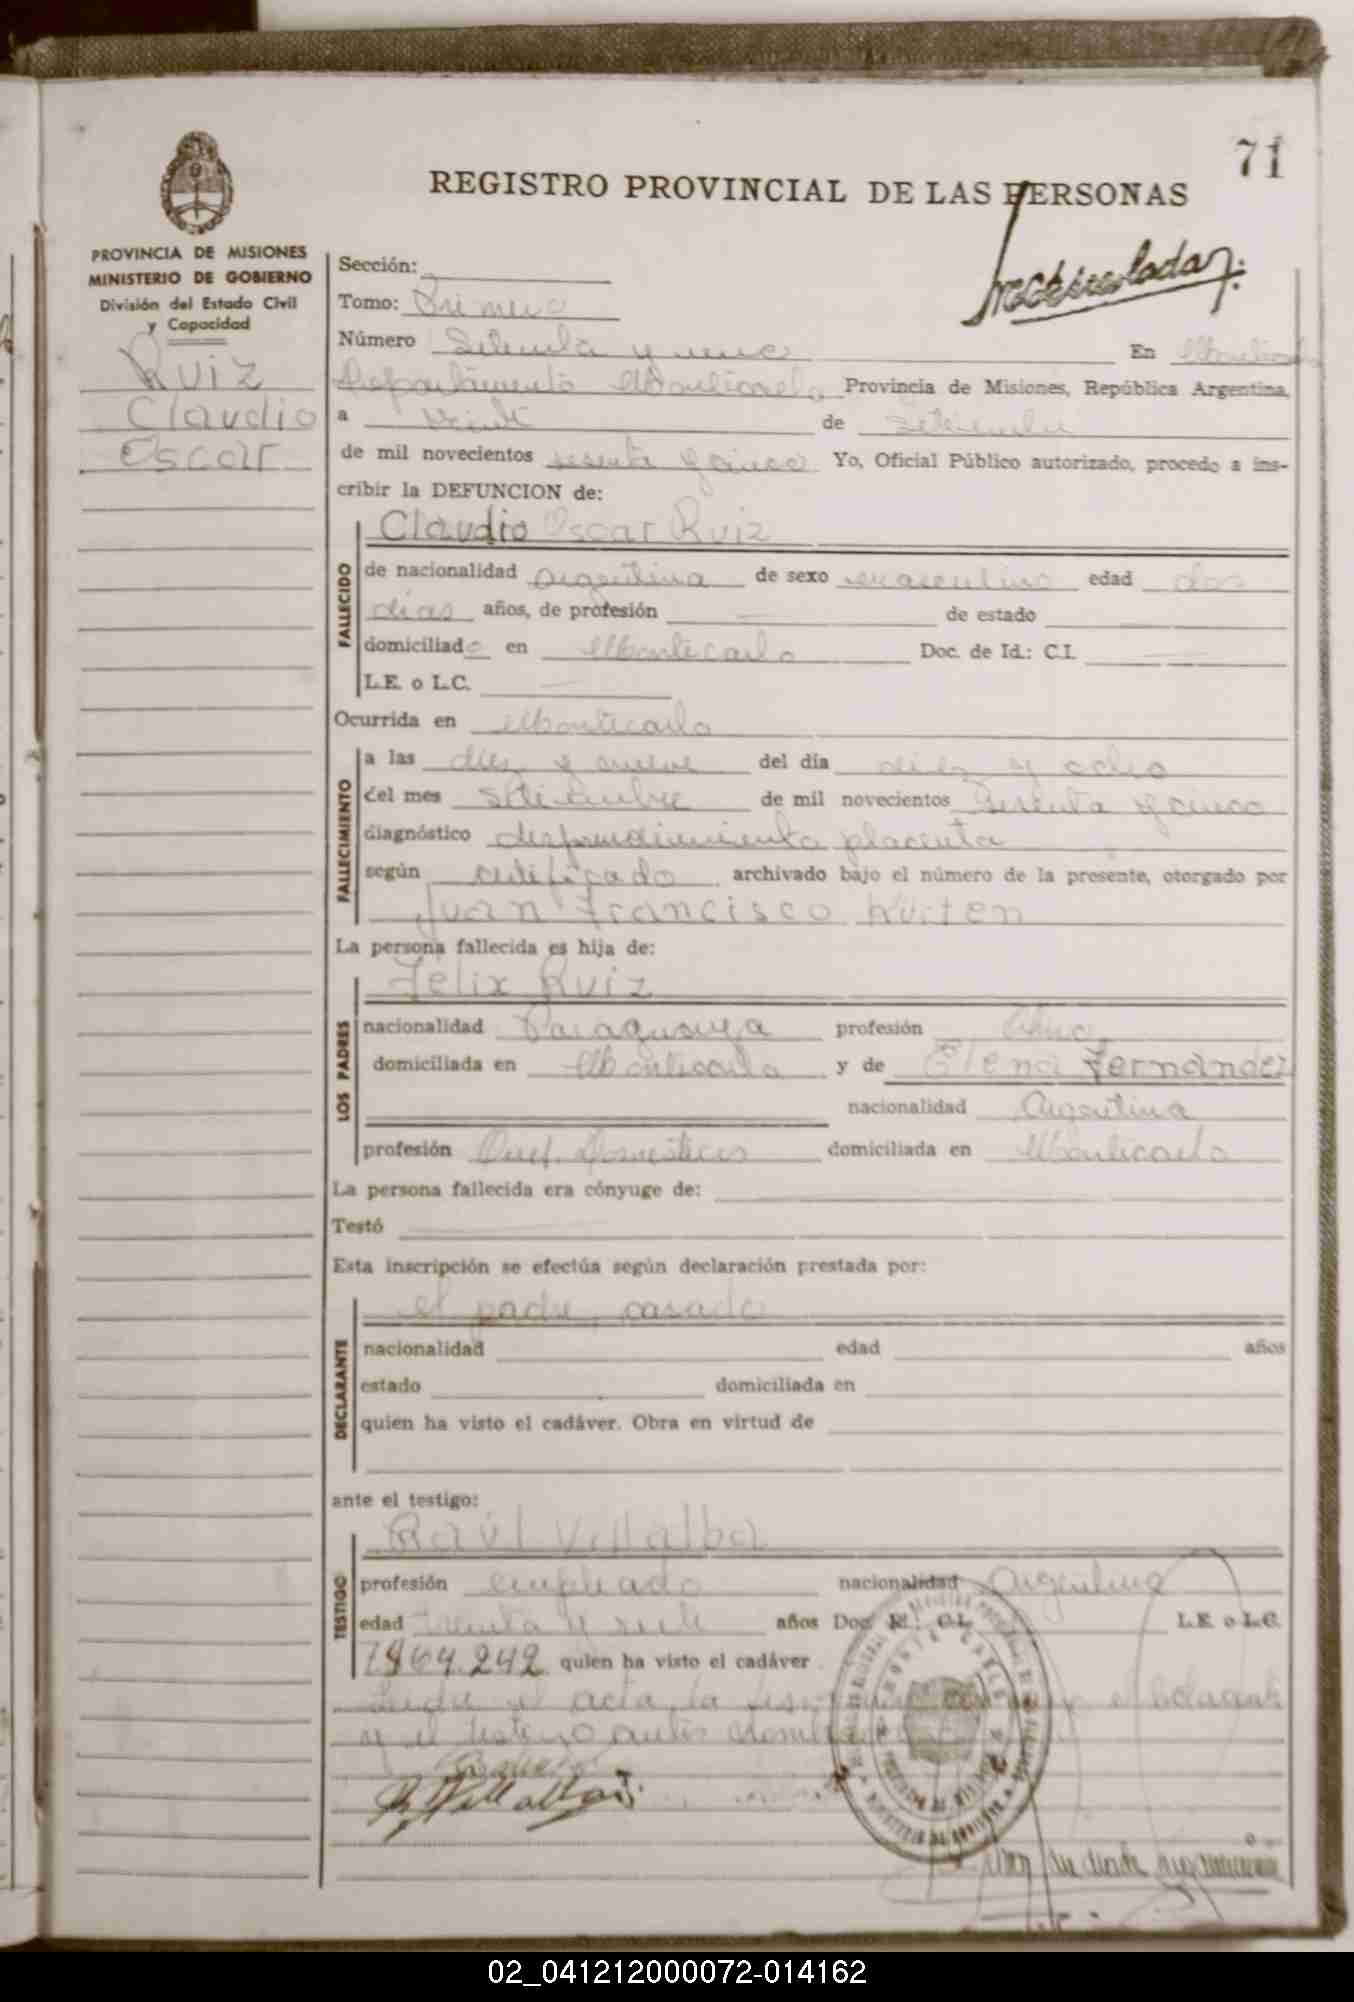 71
REGISTRO PROVINCIAL DE LAS PERSONAS
PROVINCIA DE MISIONES
MINISTERIO DE GOBIERNO
División del Estado Civil
y Capacidad
Ruiz
Claudio
Oscar
Sección:
Tomo: Primero
Número Setenta y uno En Montecarlo
Departamento Montecarlo Provincia de Misiones, República Argentina,
a veinte de setiembre
de mil novecientos sesenta y cinco Yo, Oficial Público autorizado, procedo a ins-
cribir la DEFUNCION de:
Claudio Oscar Ruiz
FALLECIDO
de nacionalidad argentina de sexo masculino edad dos
días años, de profesión de estado
domiciliado en Montecarlo Doc. de Id.: C.I.
L.E. o L.C.
Ocurrida en Montecarlo
FALLECIMIENTO
a las diez y nueve del día diez y ocho
del mes setiembre de mil novecientos sesenta y cinco
diagnóstico desprendimiento placenta
según certificado archivado bajo el número de la presente, otorgado por
Juan Francisco Kürten
La persona fallecida es hija de:
Félix Ruiz
LOS PADRES
nacionalidad Paraguaya profesión
domiciliada en Montecarlo y de Elena Fernández
nacionalidad Argentina
profesión Quef. Domésticos domiciliada en Montecarlo
La persona fallecida era cónyuge de:
Testó
Esta inscripción se efectúa según declaración prestada por:
el padre, casado
DECLARANTE
nacionalidad edad años
estado domiciliada en
quien ha visto el cadáver. Obra en virtud de
ante el testigo:
Raúl Villalba
TESTIGO
profesión empleado nacionalidad Argentina
edad treinta y siete años Doc. Id.: C.I. L.E. o L.C.
1964.242 quien ha visto el cadáver
Leída el acta la
y el testigo antes
R. Villalba
02_041212000072-014162